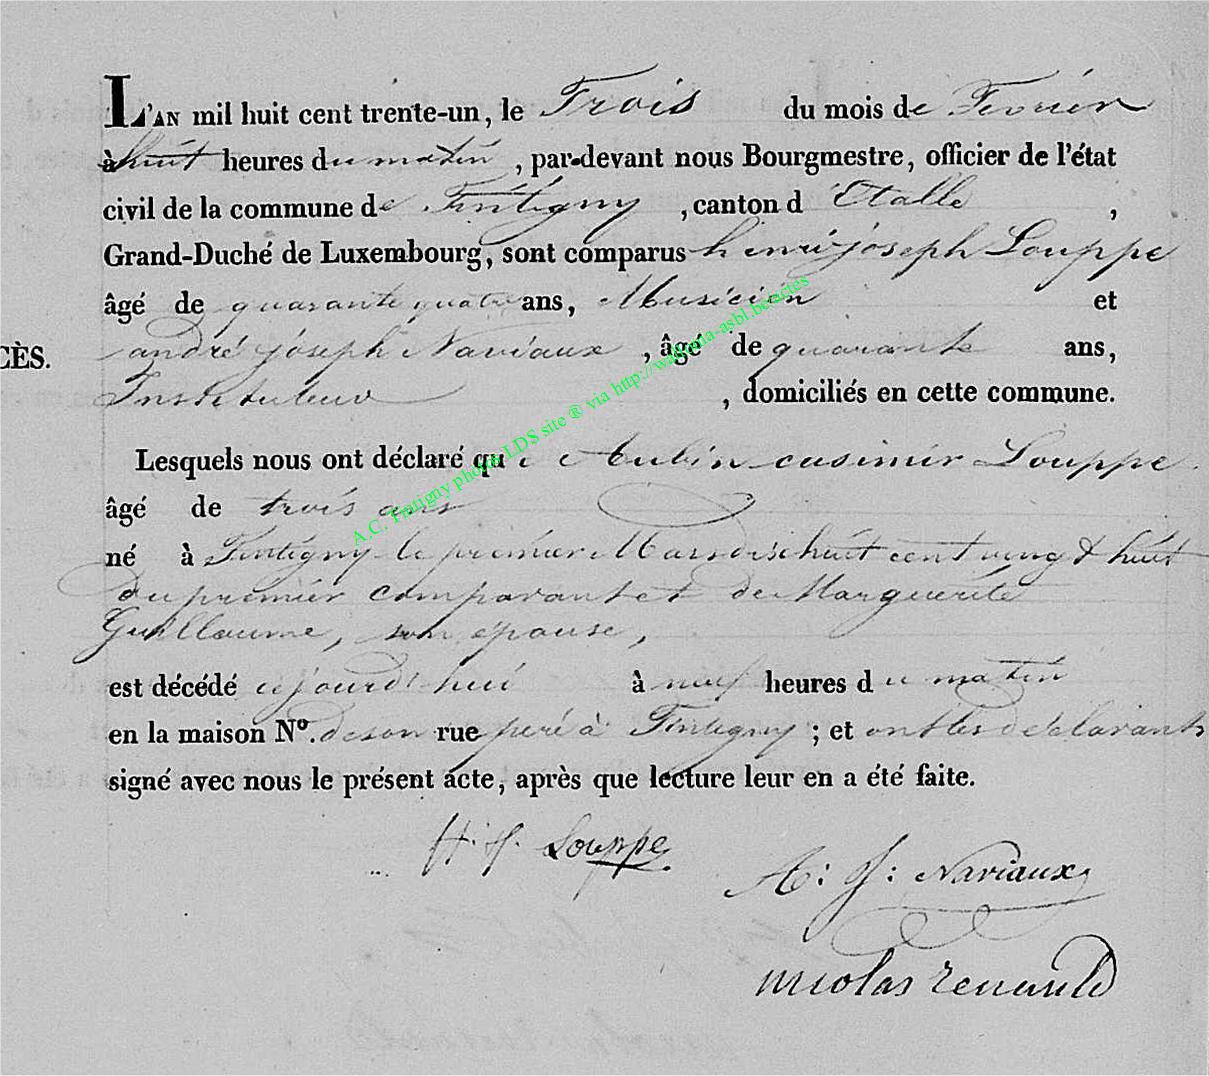 L'AN mil huit cent trente-un, le Trois du mois de Fevrier
à huit heures du matin, par-devant nous Bourgmestre, officier de l'état
civil de la commune de Tintigny, canton d'Etalle,
Grand-Duché de Luxembourg, sont comparus henri joseph Louppe
âgé de quarante quatre ans, Musicien et
andré joseph Naviaux, âgé de quarante ans,
CÈS.
Instituteur, domiciliés en cette commune.
Lesquels nous ont déclaré que Aubin casimir Louppe
âgé de trois ans
né à Tintigny le premier Mars dix huit cent vingt huit
du premier comparant et de Marguerite
Guillaume, son épouse,
est décédé ce jourd'hui à neuf heures du matin
en la maison N°. de son rue peré à Tintigny; et ont les déclarants
signé avec nous le présent acte, après que lecture leur en a été faite.
H. J. Louppe
A: J: Naviaux
nicolas renauld
A.C. Tintigny photos LDS site ® via http://wallonia-asbl.be/actes